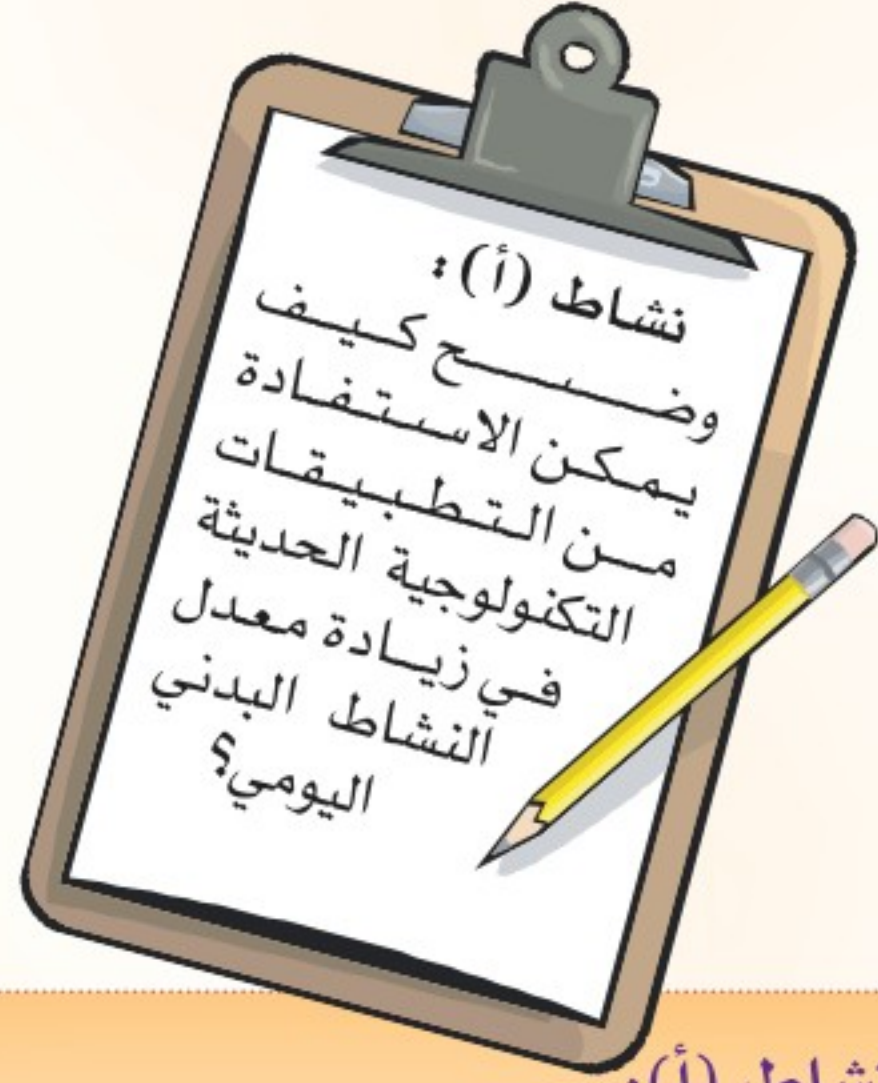 نشاط (أ) :
وضح كيف
يمكن الاستفادة
من التطبيقات
التكنولوجية الحديثة
في زيادة معدل
النشاط البدني
اليومي؟
نشاط (أ):